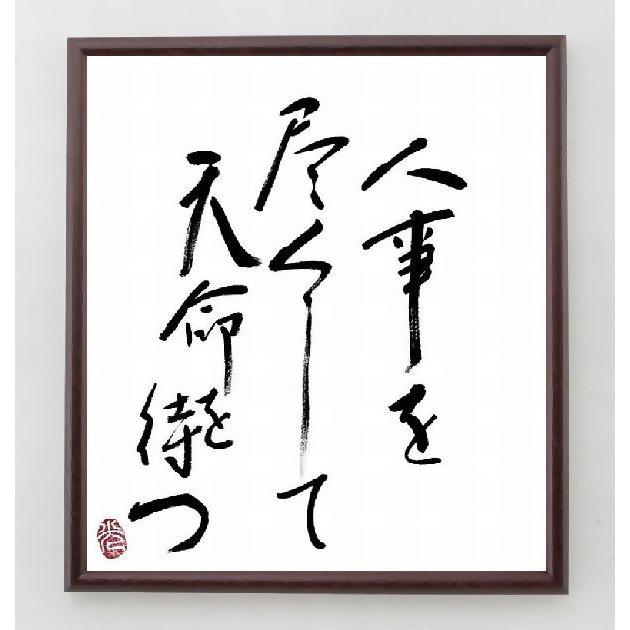 人事を
尽くして
天命を
待つ